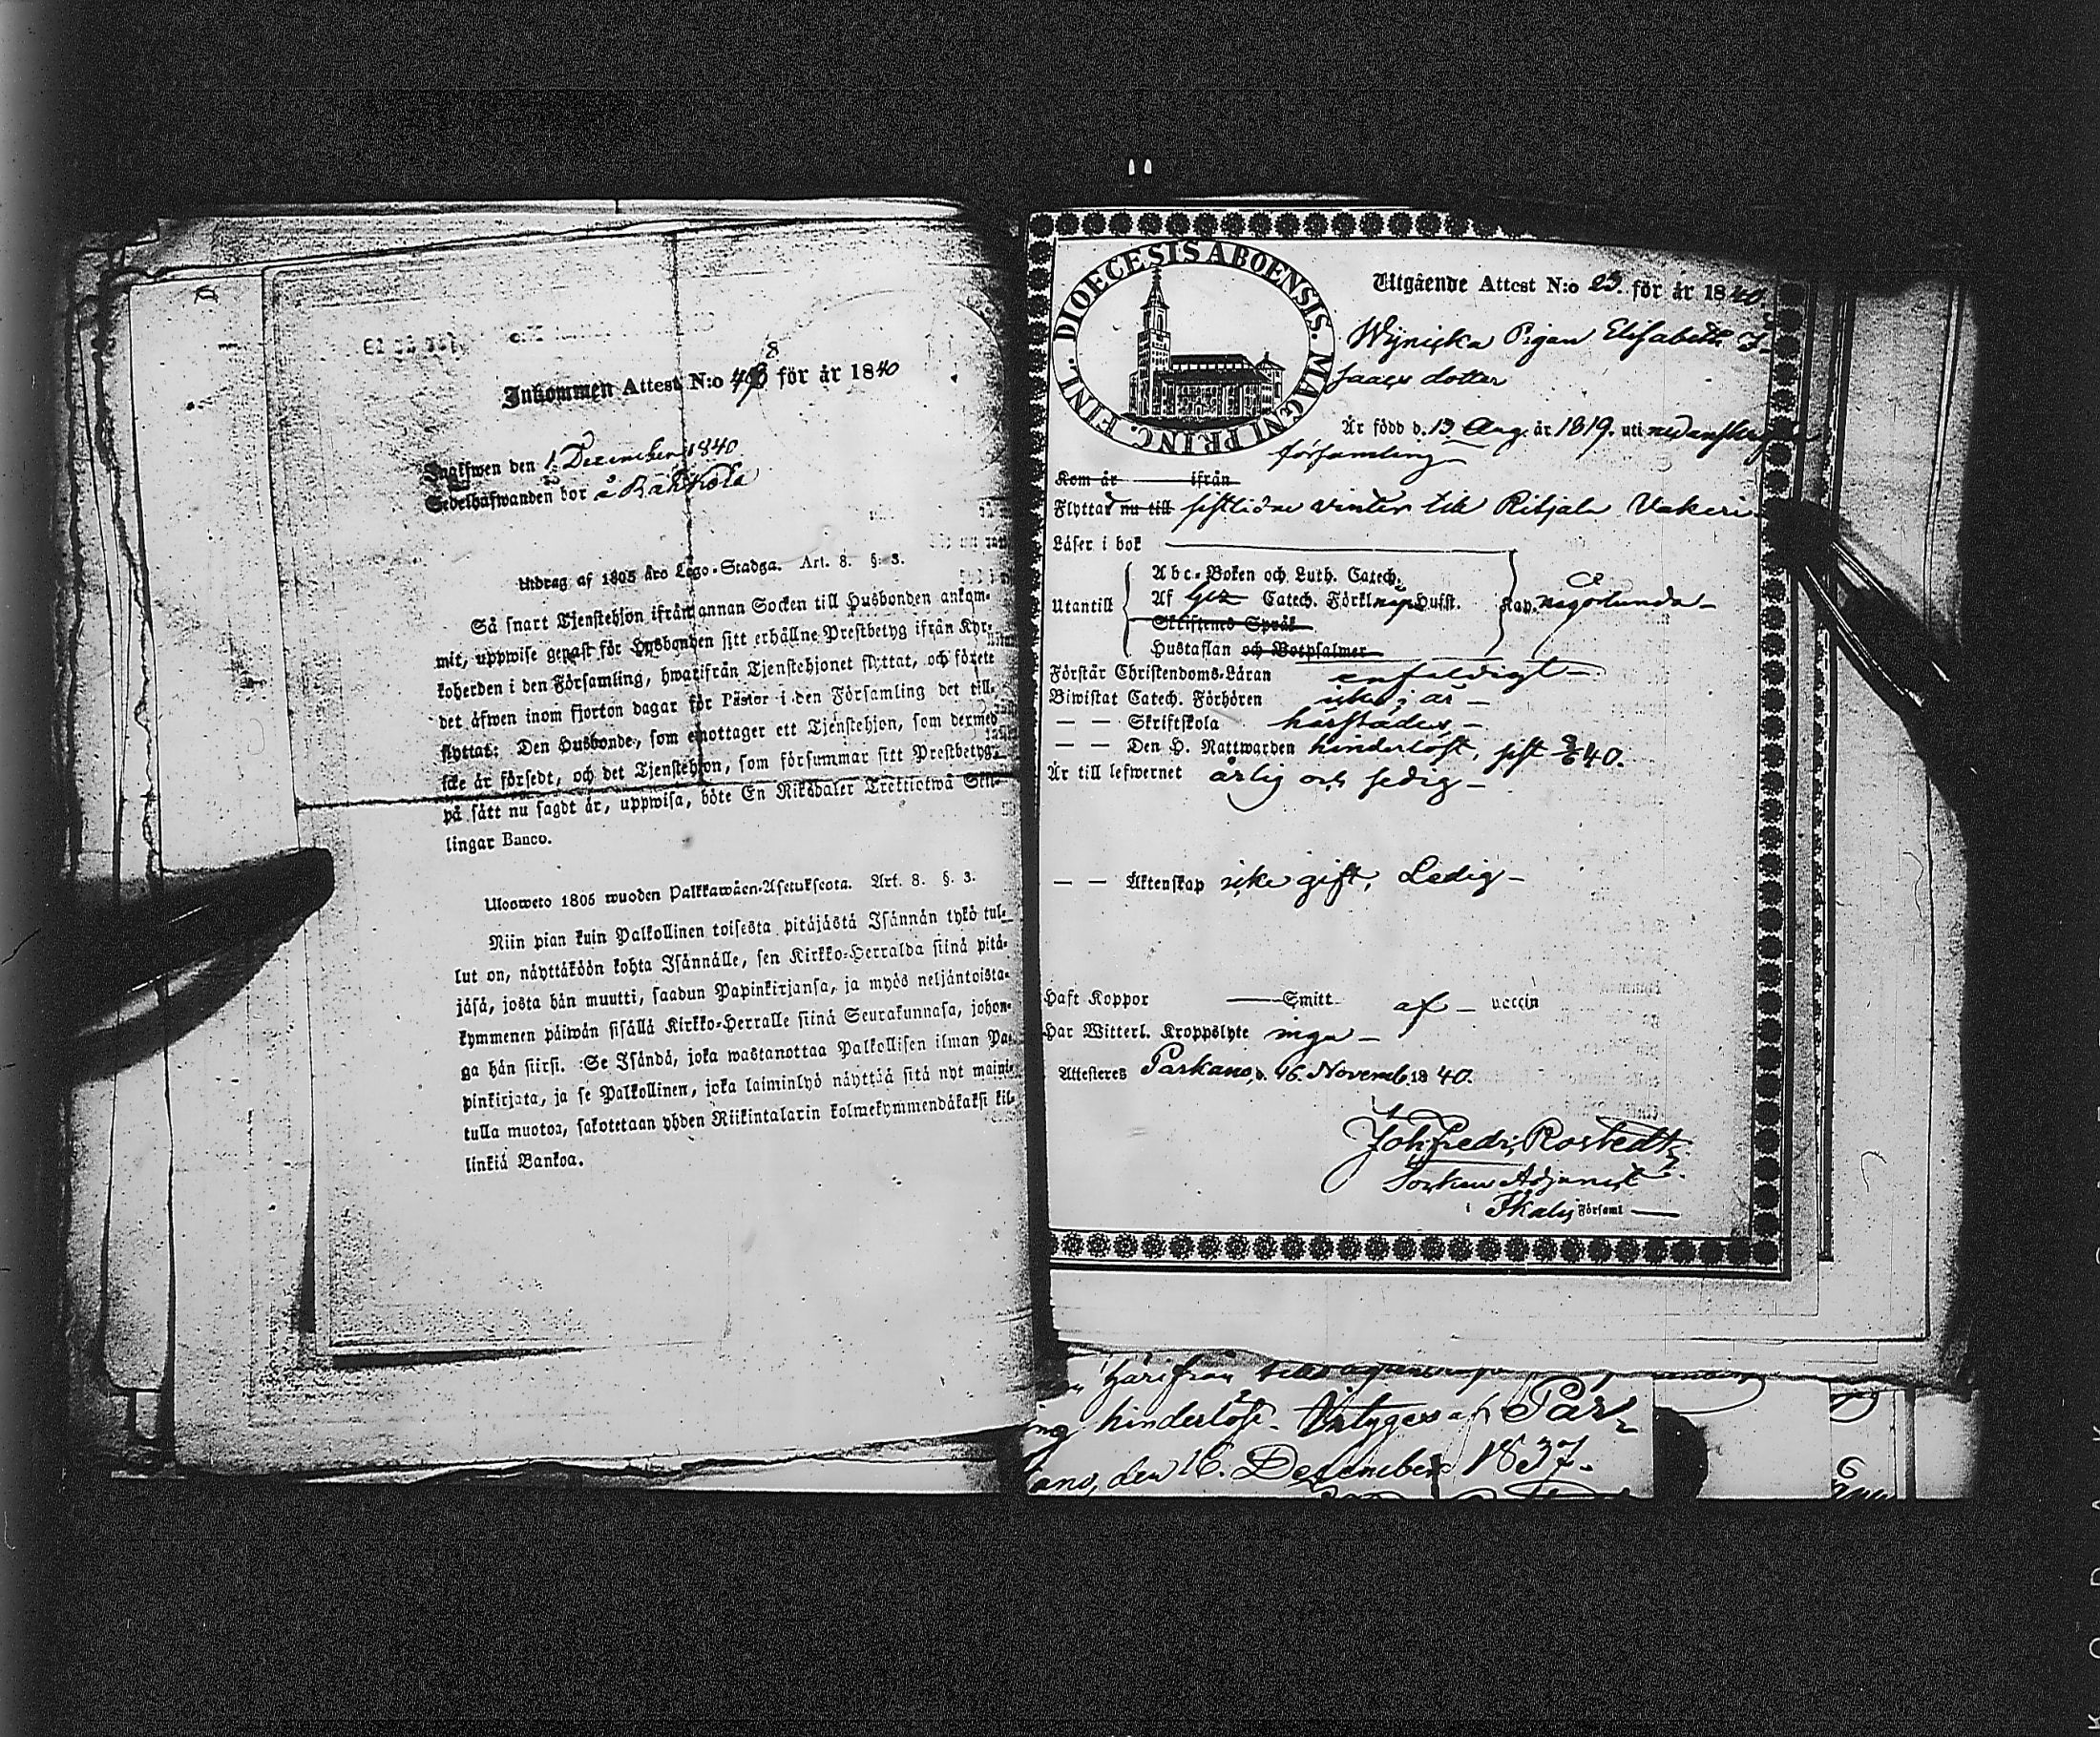 Inkommen Attest N:o 48 för år 1840
Ingifwen den 1 December 1840
Sedelhafwanden bor å Rähkölä
Utdrag af 1805 års Lego-Stadga. Art. 8. §. 3.
Så snart Tjenstehjon ifrån annan Socken till Husbonden ankom-
mit, uppwise genast för Husbonden sitt erhållne Prestbetyg ifrån Kyr-
koherden i den Församling, hwarifrån Tjenstehjonet flyttat, och förete
det äfwen inom fjorton dagar för Pastor i den Församling det till-
flyttat: Den Husbonde, som emottager ett Tjenstehjon, som dermed
icke är försedt, och det Tjenstehjon, som försummar sitt Prestbetyg,
på sätt nu sagdt är, uppwisa, böte En Riksdaler Trettiotwå Skil-
lingar Banco.
Uloosweto 1805 wuoden Palkkawäen-Asetuksesta. Art. 8. §. 3.
Niin pian kuin Palkollinen toisesta pitäjästä Isännän tykö tul-
lut on, näyttäköön kohta Isännälle, sen Kirkko-Herralda siinä pitä-
jäsä, josta hän muutti, saadun Papinkirjansa, ja myös neljäntoista-
kymmenen päiwän sisällä Kirkko-Herralle siinä Seurakunnasa, johon-
ga hän siirsi. Se Isändä, joka wastanottaa Palkollisen ilman Pa-
pinkirjata, ja se Palkollinen, joka laiminlyö näyttää sitä nyt maini-
tulla muotoa, sakotetaan yhden Riikintalarin kolmekymmendäkaksi kil-
linkiä Bankoa.
DIOECESIS ABOENSIS. MAGNI PRINC. FINL.
Utgående Attest N:o 23. för år 1840.
Pigan Elisabeth I-
saacs dotter
Är född d. 13 Aug. år 1819. uti
församling
Kom år ifrån
Flyttad nu till sistlidne vinter till
Läser i bok
Abc-Boken och Luth. Catech.
Utantill Af Catech. Förkl. Hufst. Kan någorlunda
Skriftenes Språk
Hustaflan och Botpsalmer
Förstår Christendoms-Läran enfaldigt
Biwistat Catech. Förhören icke i år
— — Skriftskola härstädes,
— — Den H. Nattwarden hinderlöst, sist 40.
Är till lefwernet ärlig och sedig
— — Äktenskap icke gift, Ledig
Haft Koppor Smitt. af vaccin
Har Witterl. Kroppslyte inga
Attesteras Parkano, d. 16. Novemb. 1840.
Joh. Fredr. Rostedt
Socken Adjunct
i Ikalis Församl
härifrån
hinderlöst. Betygas af Par-
ano, den 16. December 1837.